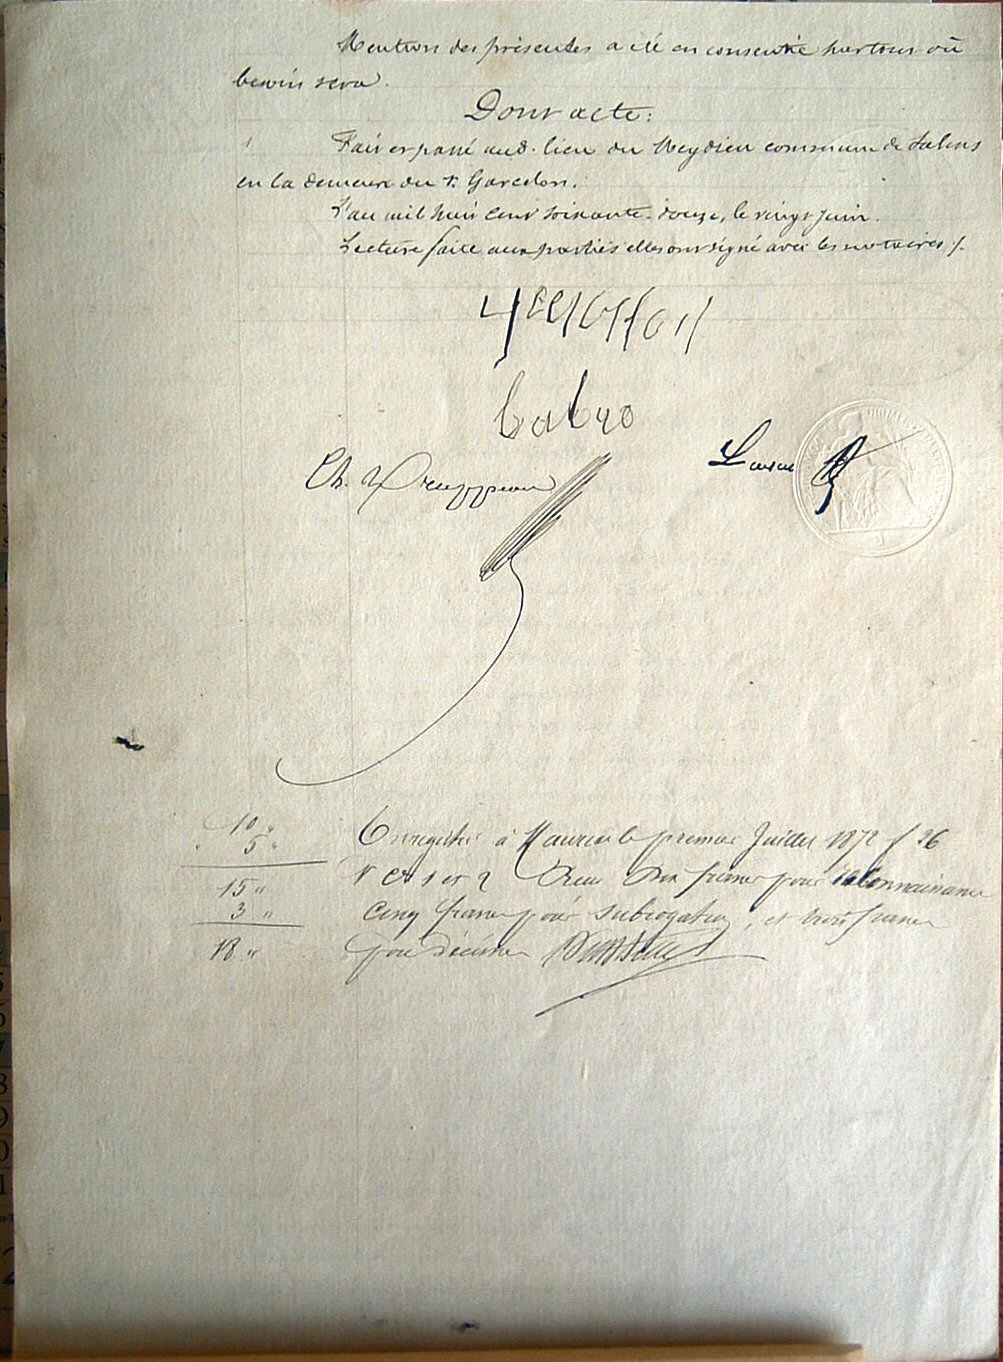 Mention des présentes a été en consentie partout où
besoin sera.
Dont acte:
Fait et passé aud. lieu du Meydieu commune de Salins
en la demeure du s. Garcelon.
L'an mil huit cent soixante-douze, le vingt juin.
Lecture faite aux parties elles ont signé avec les notaires ./.
Ch.
10 "
5 "
15 "
3 "
18 "
Enregistré à Mauriac le premier Juillet 1872 f 26
v Cs 1 et 2 Reçu Dix francs pour reconnaissance
Cinq francs pour subrogation, et trois francs
pour décimes